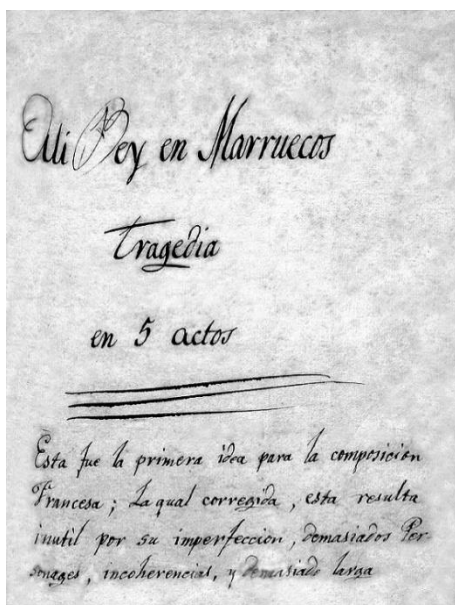 Ali Bey en Marruecos
Tragedia
en 5 actos
Esta fue la primera idea para la composicion
Francesa; La qual corregida, esta resulta
inutil por su imperfeccion, demasiados Per
sonages, incoherencias, y demasiado larga